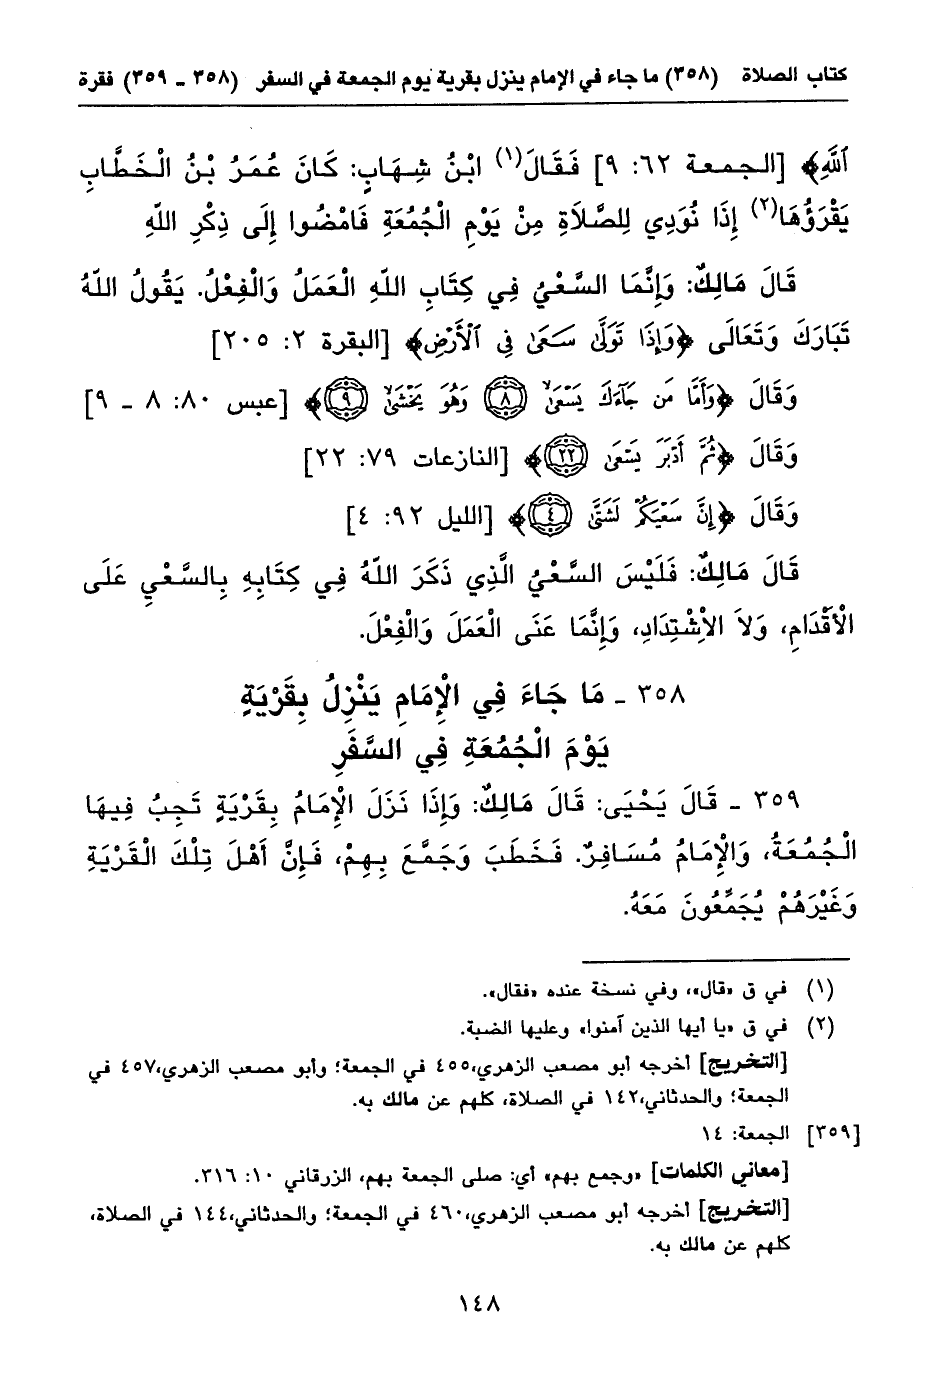 كتاب الصلاة (٣٥٨) ما جاء في الإمام ينزل بقرية يوم الجمعة في السفر (٣٥٨ ـ ٣٥٩) فقرة
ٱللَّهِ﴾ [الجمعة ٦٢: ٩] فَقَالَ(١) ابْنُ شِهَابٍ: كَانَ عُمَرُ بْنُ الْخَطَّابِ
يَقْرَؤُهَا(٢) إِذَا نُودِي لِلصَّلاَةِ مِنْ يَوْمِ الْجُمُعَةِ فَامْضُوا إِلَى ذِكْرِ اللّهِ
قَالَ مَالِكٌ: وَإِنَّمَا السَّعْيُ فِي كِتَابِ اللّهِ الْعَمَلُ وَالْفِعْلُ. يَقُولُ اللّهُ
تَبَارَكَ وَتَعَالَى ﴿وَإِذَا تَوَلَّىٰ سَعَىٰ فِي ٱلْأَرْضِ﴾ [البقرة ٢: ٢٠٥]
وَقَالَ ﴿وَأَمَّا مَن جَآءَكَ يَسْعَىٰ ٨ وَهُوَ يَخْشَىٰ ٩﴾ [عبس ٨٠: ٨ ـ ٩]
وَقَالَ ﴿ثُمَّ أَدْبَرَ يَسْعَىٰ ٢٢﴾ [النازعات ٧٩: ٢٢]
وَقَالَ ﴿إِنَّ سَعْيَكُمْ لَشَتَّىٰ ٤﴾ [الليل ٩٢: ٤]
قَالَ مَالِكٌ: فَلَيْسَ السَّعْيُ الَّذِي ذَكَرَ اللّهُ فِي كِتَابِهِ بِالسَّعْيِ عَلَى
الْأَقْدَامِ، وَلاَ الاْشْتِدَادِ، وَإِنَّمَا عَنَى الْعَمَلَ وَالْفِعْلَ.
٣٥٨ ـ مَا جَاءَ فِي الْإِمَامِ يَنْزِلُ بِقَرْيَةٍ
يَوْمَ الْجُمُعَةِ فِي السَّفَرِ
٣٥٩ ـ قَالَ يَحْيَى: قَالَ مَالِكٌ: وَإِذَا نَزَلَ الْإِمَامُ بِقَرْيَةٍ تَجِبُ فِيهَا
الْجُمُعَةُ، وَالْإِمَامُ مُسَافِرٌ. فَخَطَبَ وَجَمَّعَ بِهِمْ، فَإِنَّ أَهْلَ تِلْكَ الْقَرْيَةِ
وَغَيْرَهُمْ يُجَمِّعُونَ مَعَهُ.
(١) في ق «قال»، وفي نسخة عنده «فقال».
(٢) في ق «يا أيها الذين آمنوا» وعليها الضبة.
[التخريج] أخرجه أبو مصعب الزهري،٤٥٥ في الجمعة؛ وأبو مصعب الزهري،٤٥٧ في
الجمعة؛ والحدثاني،١٤٢ في الصلاة، كلهم عن مالك به.
[٣٥٩] الجمعة: ١٤
[معاني الكلمات] «وجمع بهم» أي: صلى الجمعة بهم، الزرقاني ١٠: ٣١٦.
[التخريج] أخرجه أبو مصعب الزهري،٤٦٠ في الجمعة؛ والحدثاني،١٤٤ في الصلاة،
كلهم عن مالك به.
١٤٨